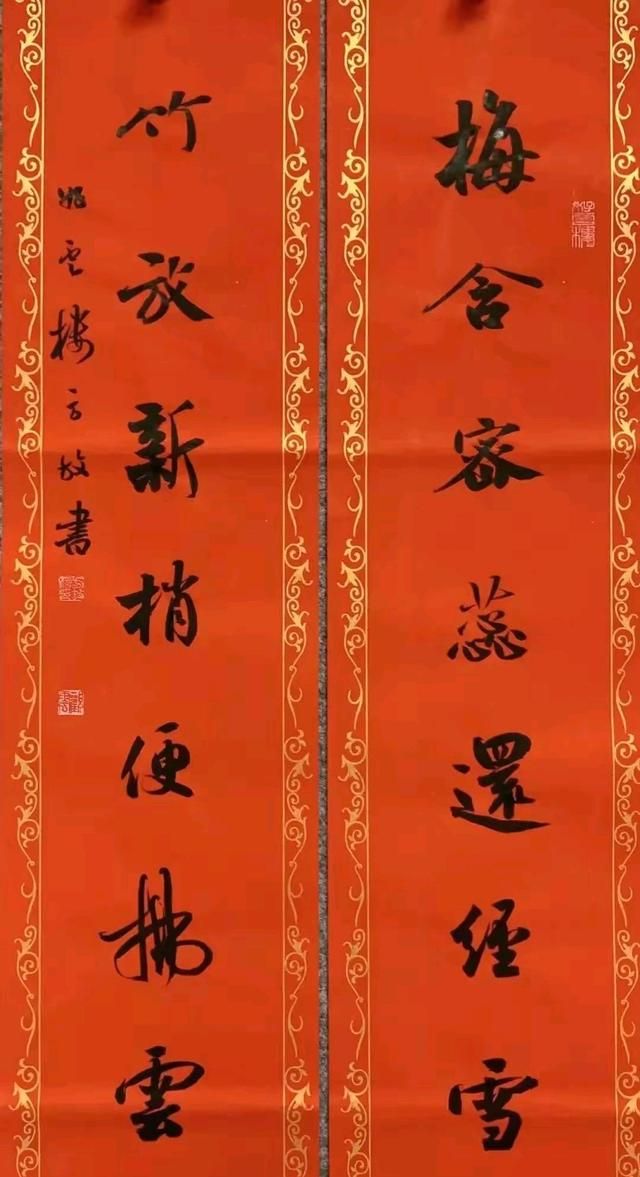 梅含密蕊還經雪
竹放新梢便拂雲
雲樓書